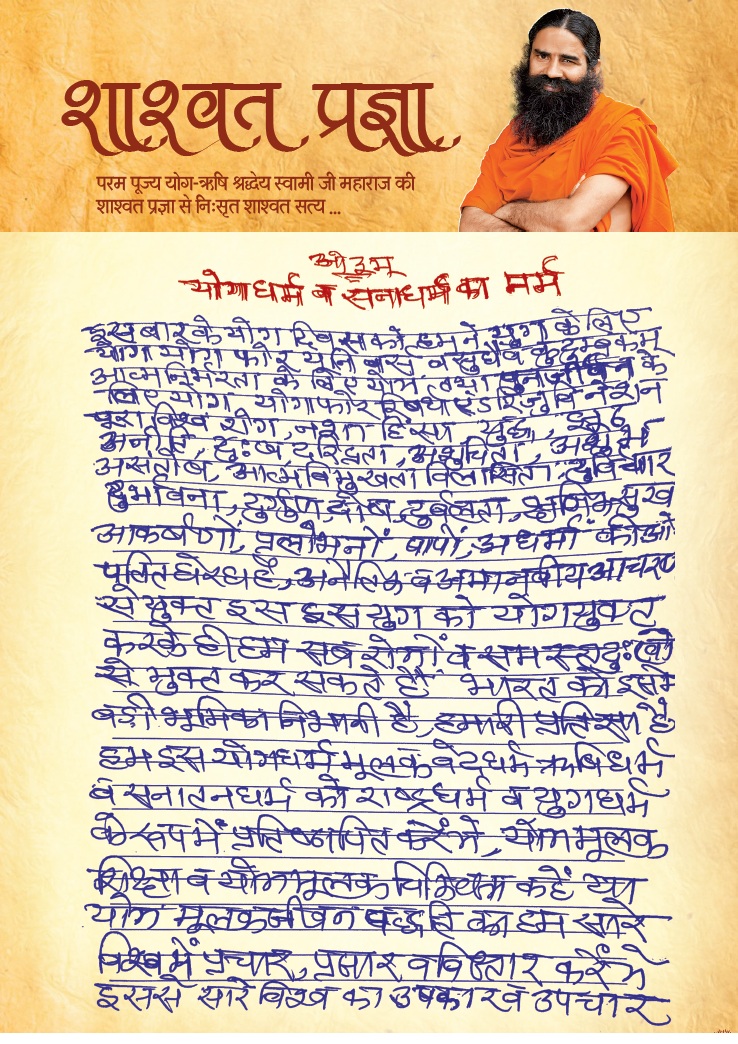 शाश्वत प्रज्ञा
परम पूज्य योग-ऋषि श्रद्धेय स्वामी जी महाराज की
शाश्वत प्रज्ञा से निःसृत शाश्वत सत्य ...
ओ३म्
योगधर्म व सनाधर्म का मर्म
इस बार के योग दिवस को हमने युग के लिए
योग योग फोर यूनिवर्स वसुधैव कुटुम्बकम्
आत्मनिर्भरता के लिए योग तथा पुनर्जीवन के
लिए योग योगा फोर रिबर्थ एंड रिजुविनेशन
पूरा विश्व रोग, नशा हिंसा युद्ध, झूठ
अनीति, दुःख दरिद्रता, अशुचिता,
असंतोष, आत्मविमुखता विलासिता, दुर्विचार
दुर्भावना, दुर्गुण, दोष, दुर्बलता, क्षणिक सुख
आकर्षणों, प्रलोभनों, पापों, अधर्मों की ओर
अनैतिक व अमानवीय आचरण
से युक्त इस इस युग को योगयुक्त
करके ही हम सब रोगों व समस्त दुःखों
से मुक्त कर सकते हैं भारत को इसमें
बड़ी भूमिका निभानी है, हमारी प्रतिज्ञा है
हम इस योगधर्म मूलक वेदधर्म ऋषिधर्म
व सनातनधर्म को राष्ट्रधर्म व युगधर्म
के रूप में प्रतिष्ठापित करेंगे, योगमूलक
शिक्षा व योगमूलक चिकित्सा कहें या
योग मूलक जीवन पद्धति का हम सारे
विश्व में प्रचार, प्रसार व विस्तार करेंगे
इससे सारे विश्व का उपकार व उपचार